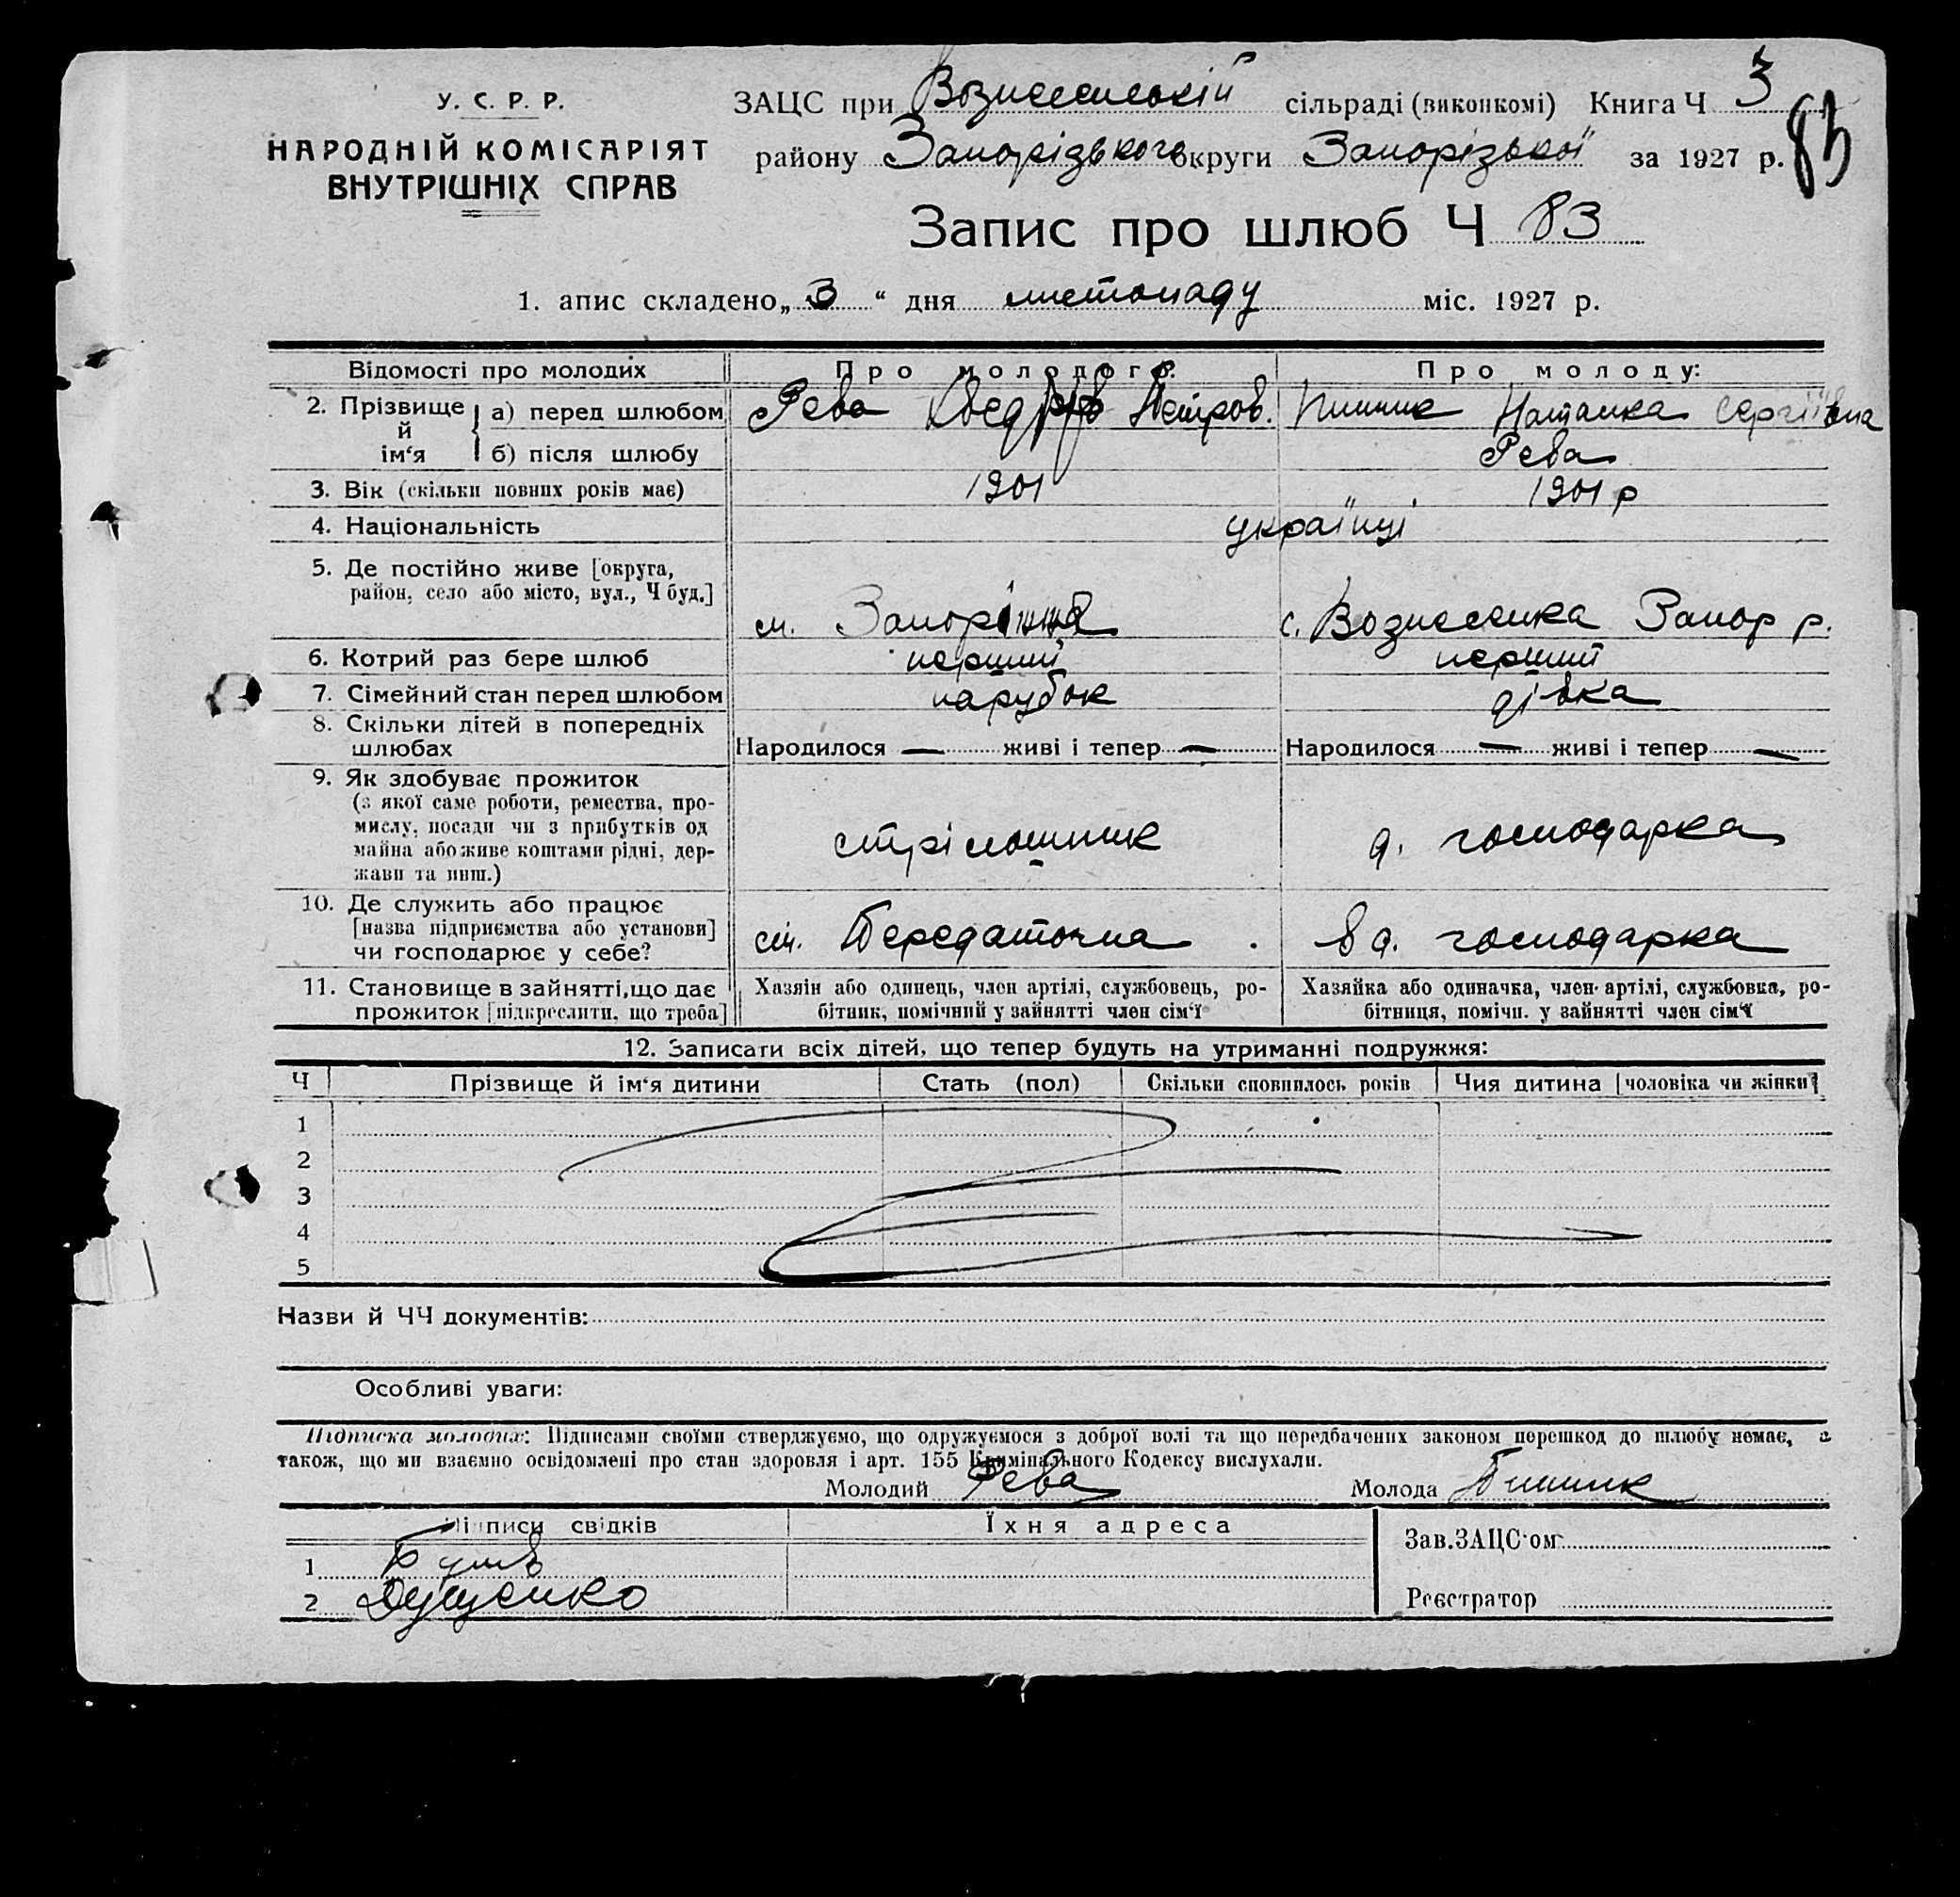 У. С. Р. Р.
НАРОДНІЙ КОМІСАРІЯТ
ВНУТРІШНІХ СПРАВ
ЗАЦС при Вознесенській сільраді (виконкомі) Книга Ч 3
83
району Запорізького округи Запорізької за 1927 р.
Запис про шлюб Ч 83
1. апис складено „ 3 “ дня листопаду міс. 1927 р.
Відомості про молодих Про молодого: Про молоду:
2. Прізвище й ім‘я а) перед шлюбом Рева Петров. Наталка Сергіївна
б) після шлюбу Рева
3. Вік (скільки повних років має) 1901 1901 р
4. Національність українці
5. Де постійно живе [округа,
район, село або місто, вул., Ч буд.] м. Запоріжжя с. Вознесенка Запор р.
6. Котрий раз бере шлюб перший перший
7. Сімейний стан перед шлюбом парубок дівка
8. Скільки дітей в попередніх
шлюбах Народилося — живі і тепер — Народилося — живі і тепер —
9. Як здобуває прожиток
(з якої саме роботи, ремества, про-
мислу, посади чи з прибутків од
майна або живе коштами рідні, дер-
жави та инш.) стрілошник д. господарка
10. Де служить або працює
[назва підприємства або установи]
чи господарює у себе? ст. Передаточна в д. господарка
11. Становище в зайнятті, що дає
прожиток [підкреслити, що треба]
Хазяїн або одинець, член артілі, службовець, ро-
бітник, помічний у зайнятті член сім‘ї
Хазяйка або одиначка, член артілі, службовка, ро-
бітниця, помічн. у зайнятті член сім‘ї
12. Записати всіх дітей, що тепер будуть на утриманні подружжя:
Ч Прізвище й ім‘я дитини Стать (пол) Скільки сповнилось років Чия дитина [чоловіка чи жінки]
1
2
3
4
5
Назви й ЧЧ документів:
Особливі уваги:
Підписка молодих: Підписами своїми стверджуємо, що одружуємося з доброї волі та що передбачених законом перешкод до шлюбу немає, а
також, що ми взаємно освідомлені про стан здоровля і арт. 155 Кримінального Кодексу вислухали.
Молодий Рева Молода
Підписи свідків Їхня адреса
1
2 Дуценко
Зав. ЗАЦС‘ом
Реєстратор